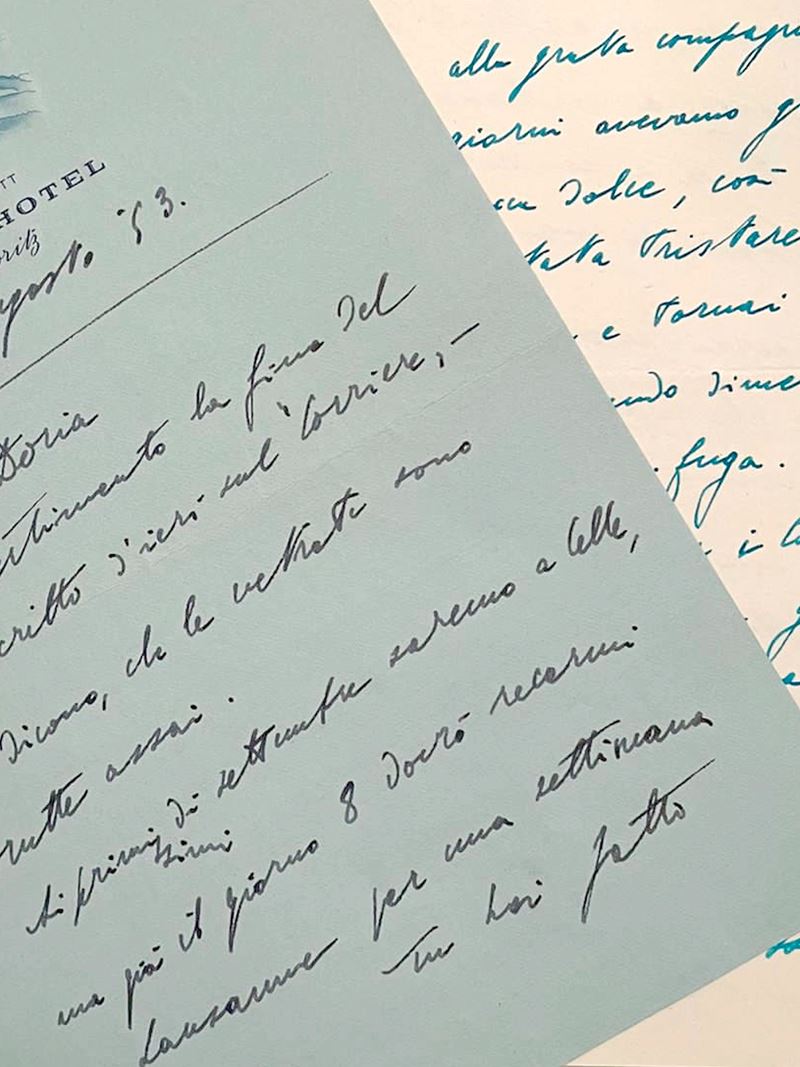 TT
HOTEL
oritz
gosto '53.
Doria
stimento la fine del
critto d'ieri sul "Corriere,-
dicono, che le vetrate sono
rutte assai.
Ai primissimi di settembre saremo a Celle,
ma già il giorno 8 dovrò recarmi
Lausanne per una settimana
Tu hai fatto
alla grata compagn
giorni avevamo g
dolce, così
tata tristare
e tornai
ando dime
fuga.
i